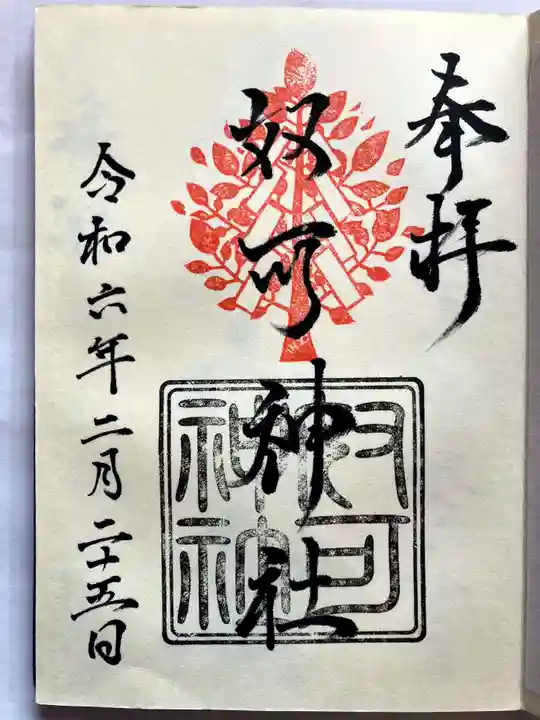 奉拝
奴可神社
令和六年二月二十五日